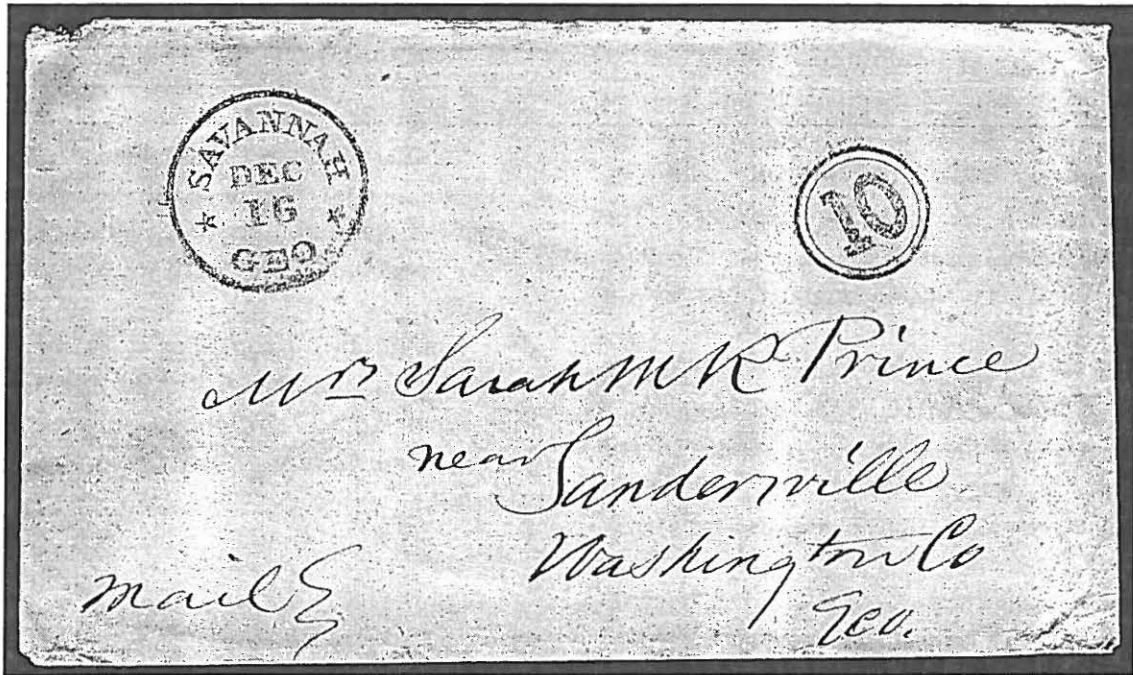 SAVANNAH
DEC
16
GEO
10
Mrs Sarah M R Prince
near Sandersville
Washington Co
Geo.
Mail